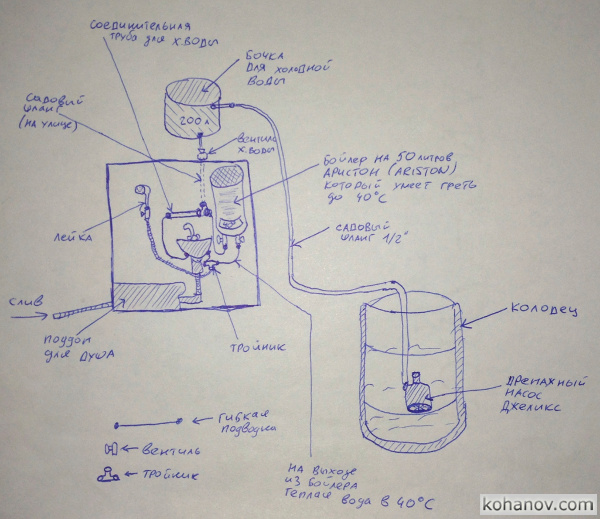 СОЕДИНИТЕЛЬНАЯ
ТРУБА ДЛЯ Х.ВОДЫ
БОЧКА
ДЛЯ ХОЛОДНОЙ
ВОДЫ
САДОВЫЙ
ШЛАНГ
(НА УЛИЦЕ)
200Л
ВЕНТИЛЬ
Х.ВОДЫ
БОЙЛЕР НА 50 ЛИТРОВ
АРИСТОН (ARISTON)
КОТОРЫЙ УМЕЕТ ГРЕТЬ
ДО 40°С
ЛЕЙКА
САДОВЫЙ
ШЛАНГ 1/2"
СЛИВ
КОЛОДЕЦ
ПОДДОН
ДЛЯ ДУША
ТРОЙНИК
ДРЕНАЖНЫЙ
НАСОС
ДЖЕЛИКС
ГИБКАЯ
ПОДВОДКА
ВЕНТИЛЬ
ТРОЙНИК
НА ВЫХОДЕ
ИЗ БОЙЛЕРА
ТЕПЛАЯ ВОДА В 40°С
kohanov.com